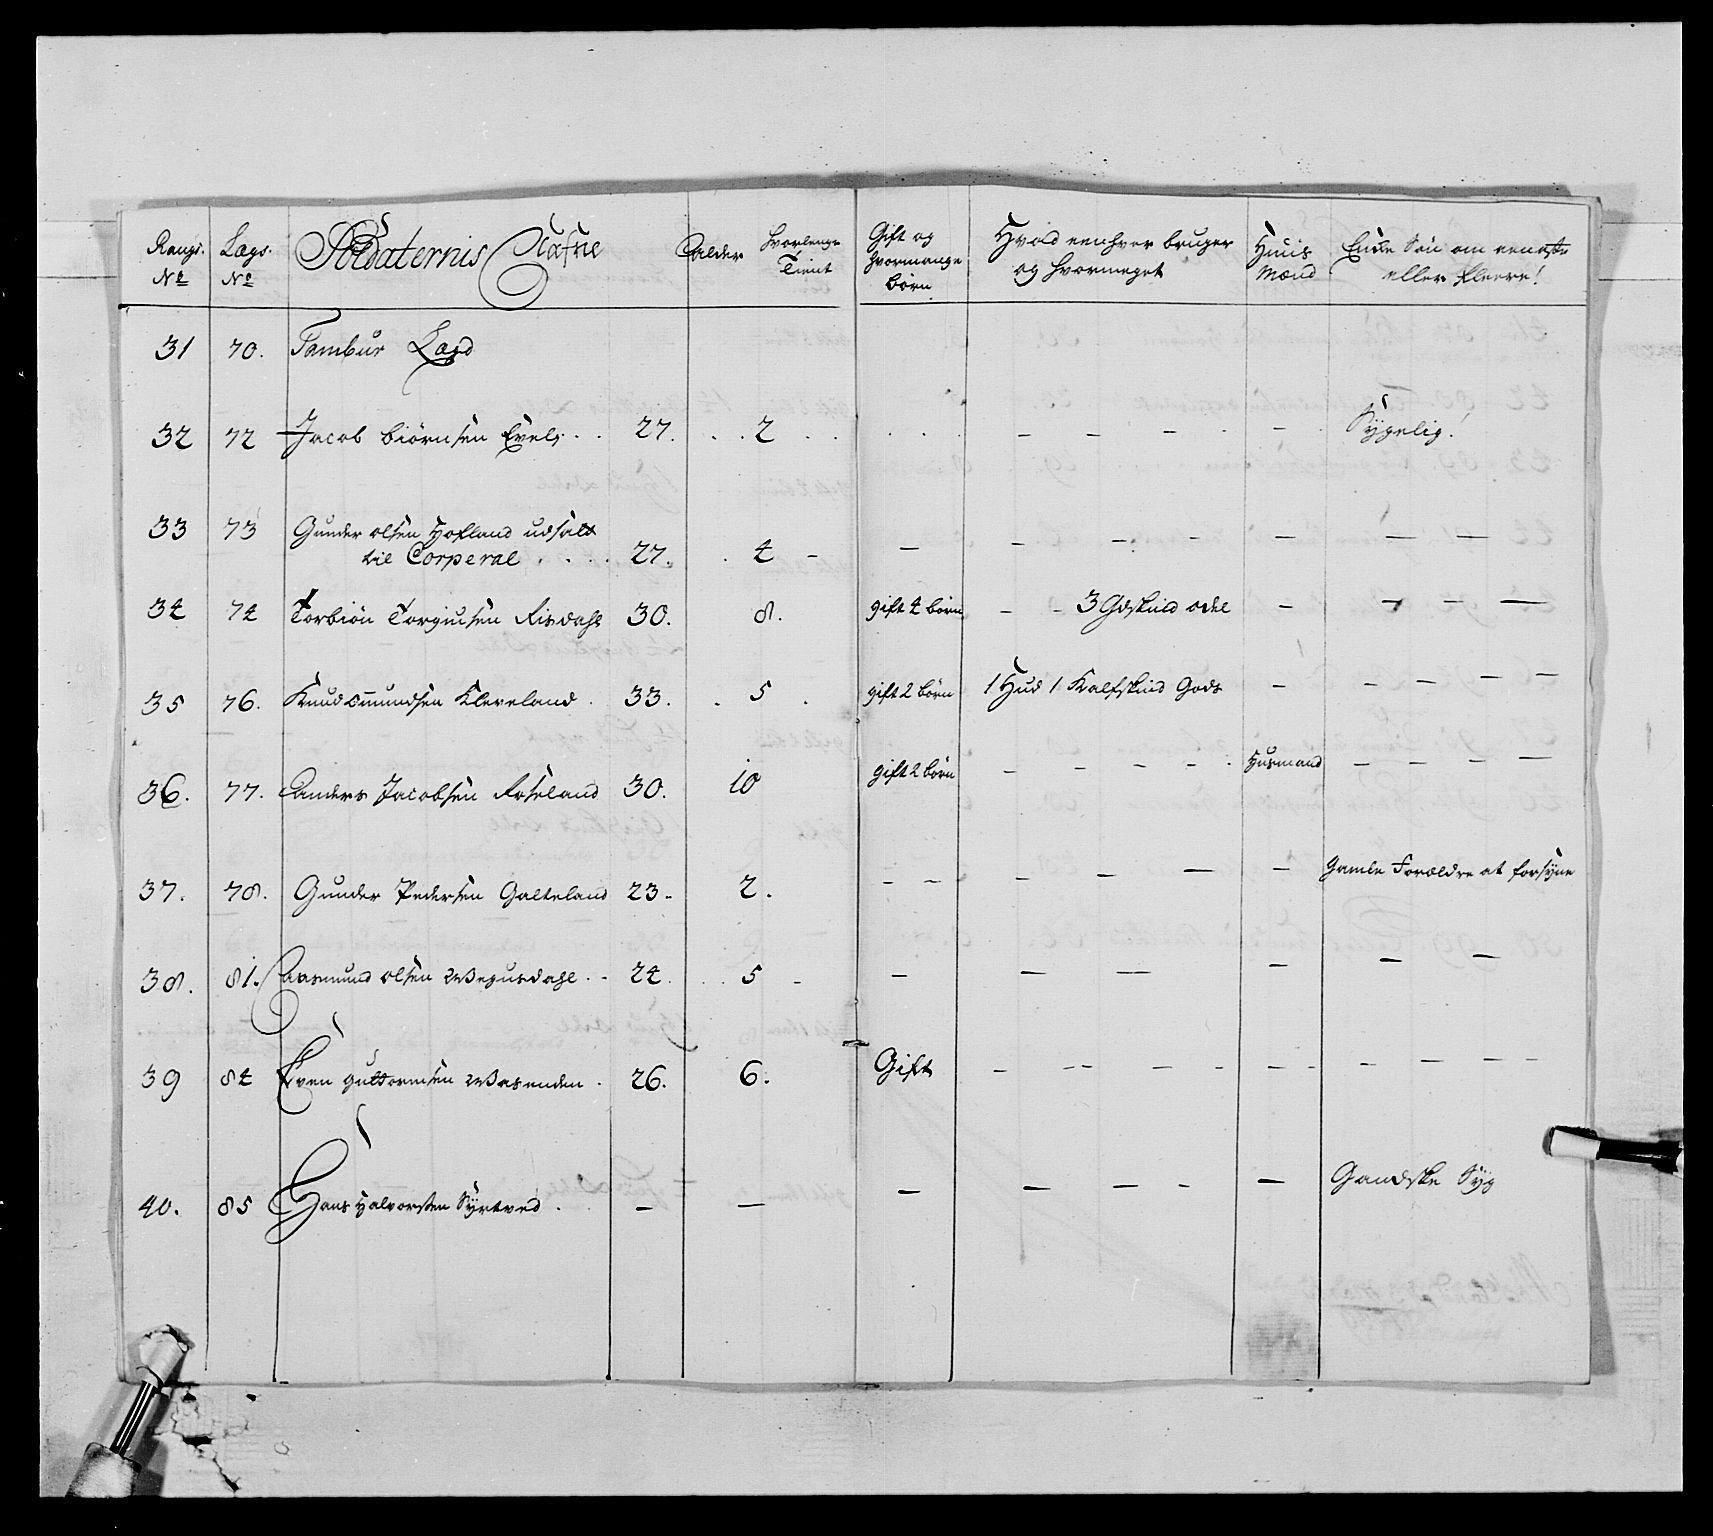 Rangs. N° | Lægs. N° | Soldaternis Nafne | Alder | hvorlenge Tient | Gift og hvormange børn | Hvad eenhver bruger og hvormeget | Huus Mænd | Enke Søn om eeneste eller fleere!
31 | 70. | Tambur Lægd
32 | 72 | Jacob Biørnsen Evels . . | 27. | . . 2 . . | . . . | – – – . | – . | Sÿgelig!
33 | 73 | Gunder olsen Hofland udsalt
til Corperal . . . . | 27. | . 4 – | – | – – – | – | – –
34 | 74 | Torbiøn Torgiusen Risdahl | 30. | 8. | gift 4 børn | – – 3 Gdskind odel | – | – – –
35 | 76. | Knud Omundsen Kleveland . | 33. | . 5 . | gift 2 børn | 1 Hud 1 Kalfskind Gods | – | – – – –
36. | 77. | Anders Jacobsen Røseland | 30. | 10 | gift 2 børn | – – – – . | Husmand | – – – –
37. | 78. | Gunder Pedersen Galteland | 23. | 2. | – – | – – – | – | Gamle Forældre at forsÿne
38. | 81. | Aasmund olsen Wegusdahl . . | 24. | . . 5 – | – | – – | – | – –
39 | 84 | Even guttormsen Wasenden . | 26. | 6. | Gift | – – – – – | – – | – – – –
40. | 85 | Hans Halvorsen Sÿrtved . | – | – | – | – – – | – | Gandske Sÿg